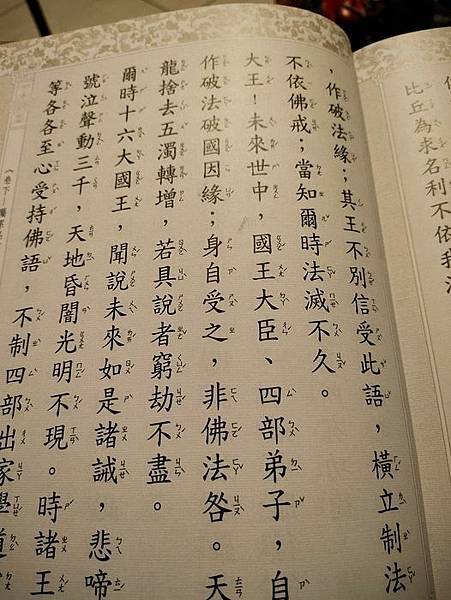 比丘為求名利不依我
，作破法緣；其王不別信受此語，橫立制法
不依佛戒；當知爾時法滅不久。
大王！未來世中，國王大臣、四部弟子，自
作破法破國因緣；身自受之，非佛法咎。天
龍捨去五濁轉增，若具說者窮劫不盡。
爾時十六大國王，聞說未來如是諸誡，悲啼
號泣聲動三千，天地昏闇光明不現。時諸王
等各各至心受持佛語，不制四部出家學道
〈卷下—囑累